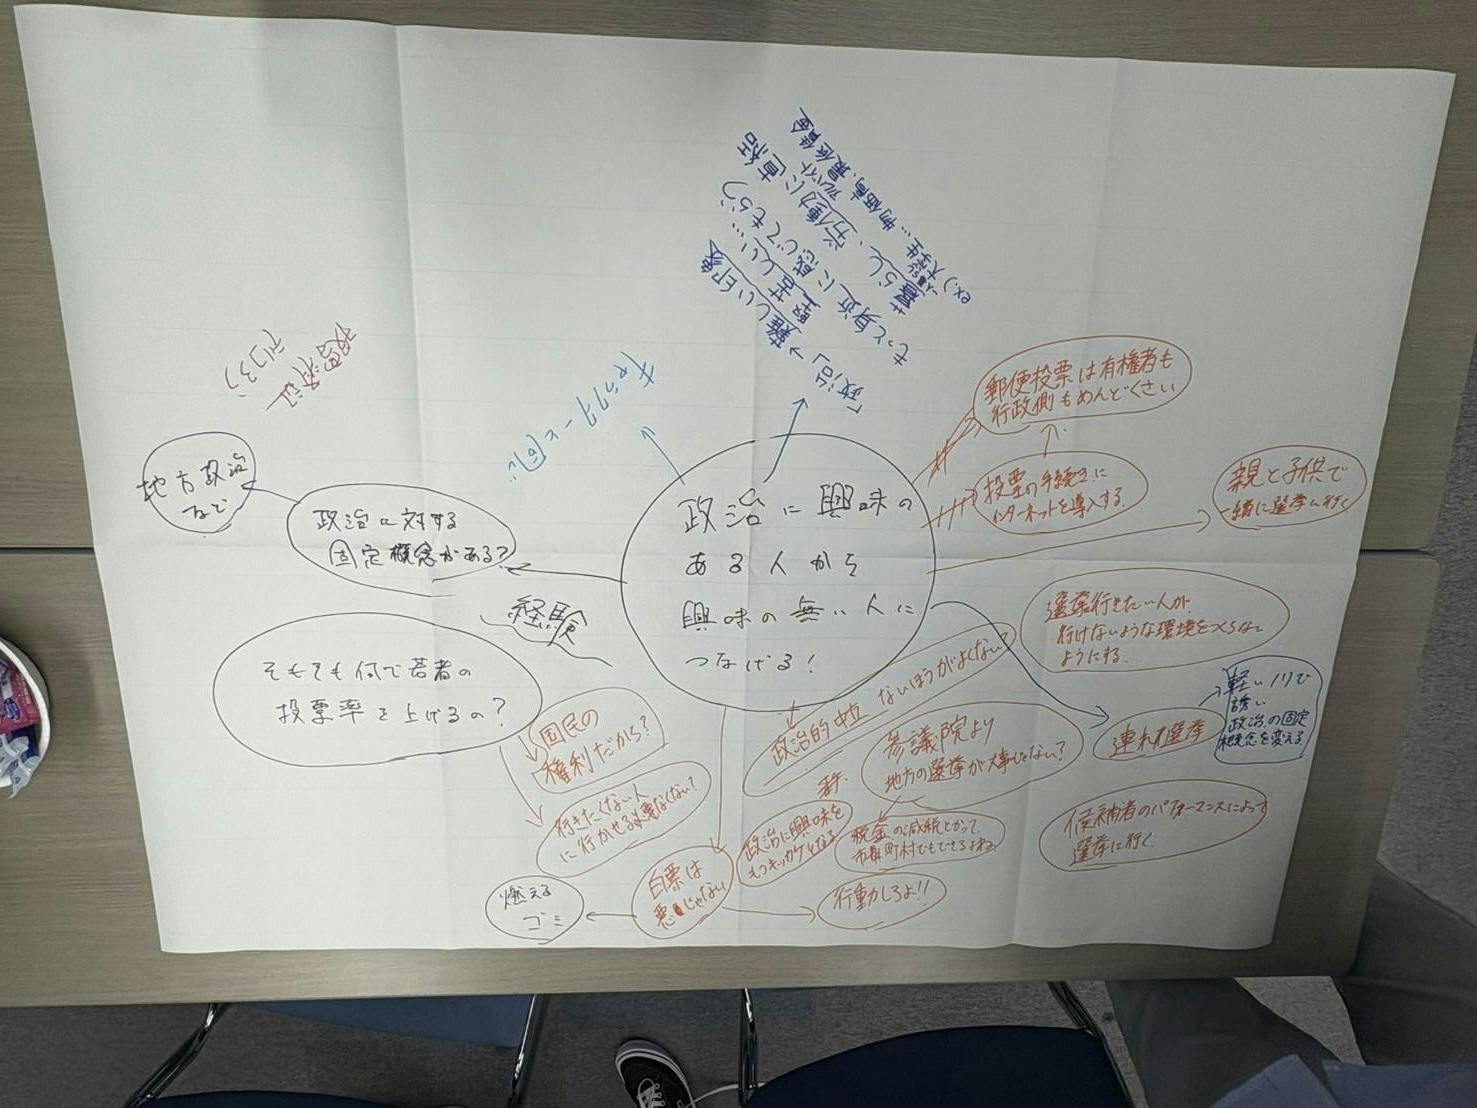 政治に興味の
ある人から
興味の無い人に
つなげる!
「政治」→難しい印象
堅苦しい…
もっと身近に感じてもらう
暮らし、労働力に直結
アルバイト
ex.)大学生…物価高、最低賃金
一人暮らし
投票済証
デリコミ)
地方政治
など
政治に対する
固定概念がある?
経験
そもそも何で若者の
投票率を上げるの?
国民の
権利だから?
行きたくない人
に行かせる必要なくない?
白票は
悪じゃない
燃える
ゴミ
行動しろよ!!
政治的中立 ないほうがよくない?
参議院より
地方の選挙が大事じゃない?
税金の減税とかって
市町村でもできるよね
政治に興味を
もつキッカケになる
郵便投票は有権者も
行政側もめんどくさい
投票の手続きに
インターネットを導入する.
親と子供で
一緒に選挙に行く
選挙行きたい人が
行けないような環境をつくらない
ようにする.
連れ選挙
軽いノリで
誘い
政治の固定
概念を変える
候補者のパフォーマンスによって
選挙に行く.